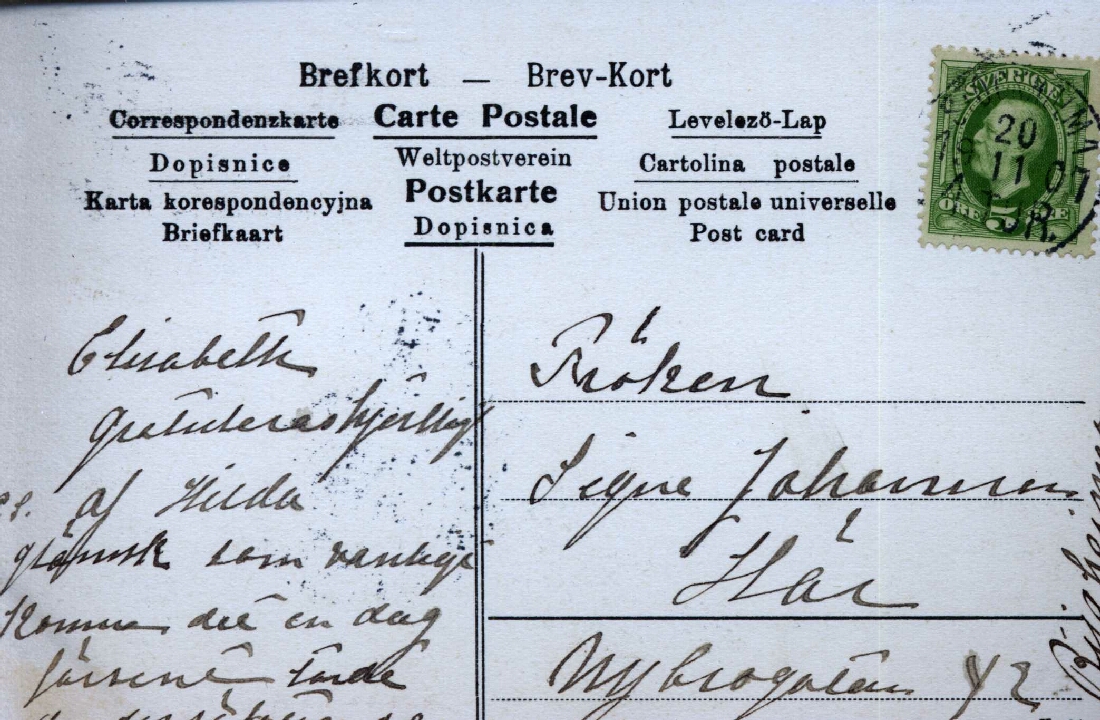 Brefkort — Brev-Kort
Correspondenzkarte Carte Postale Levelező-Lap
Dopisnice Weltpostverein Cartolina postale
Karta korespondencyjna Postkarte Union postale universelle
Briefkaart Dopisnica Post card
20
11 07
ÖRE 5 ÖRE
Elisabeth
gratuleras hjertligt
af Hilda
glömsk som vanligt
kommer det en dag
för sent
Fröken
Signe Johansson
Här
Nybrogatan 42